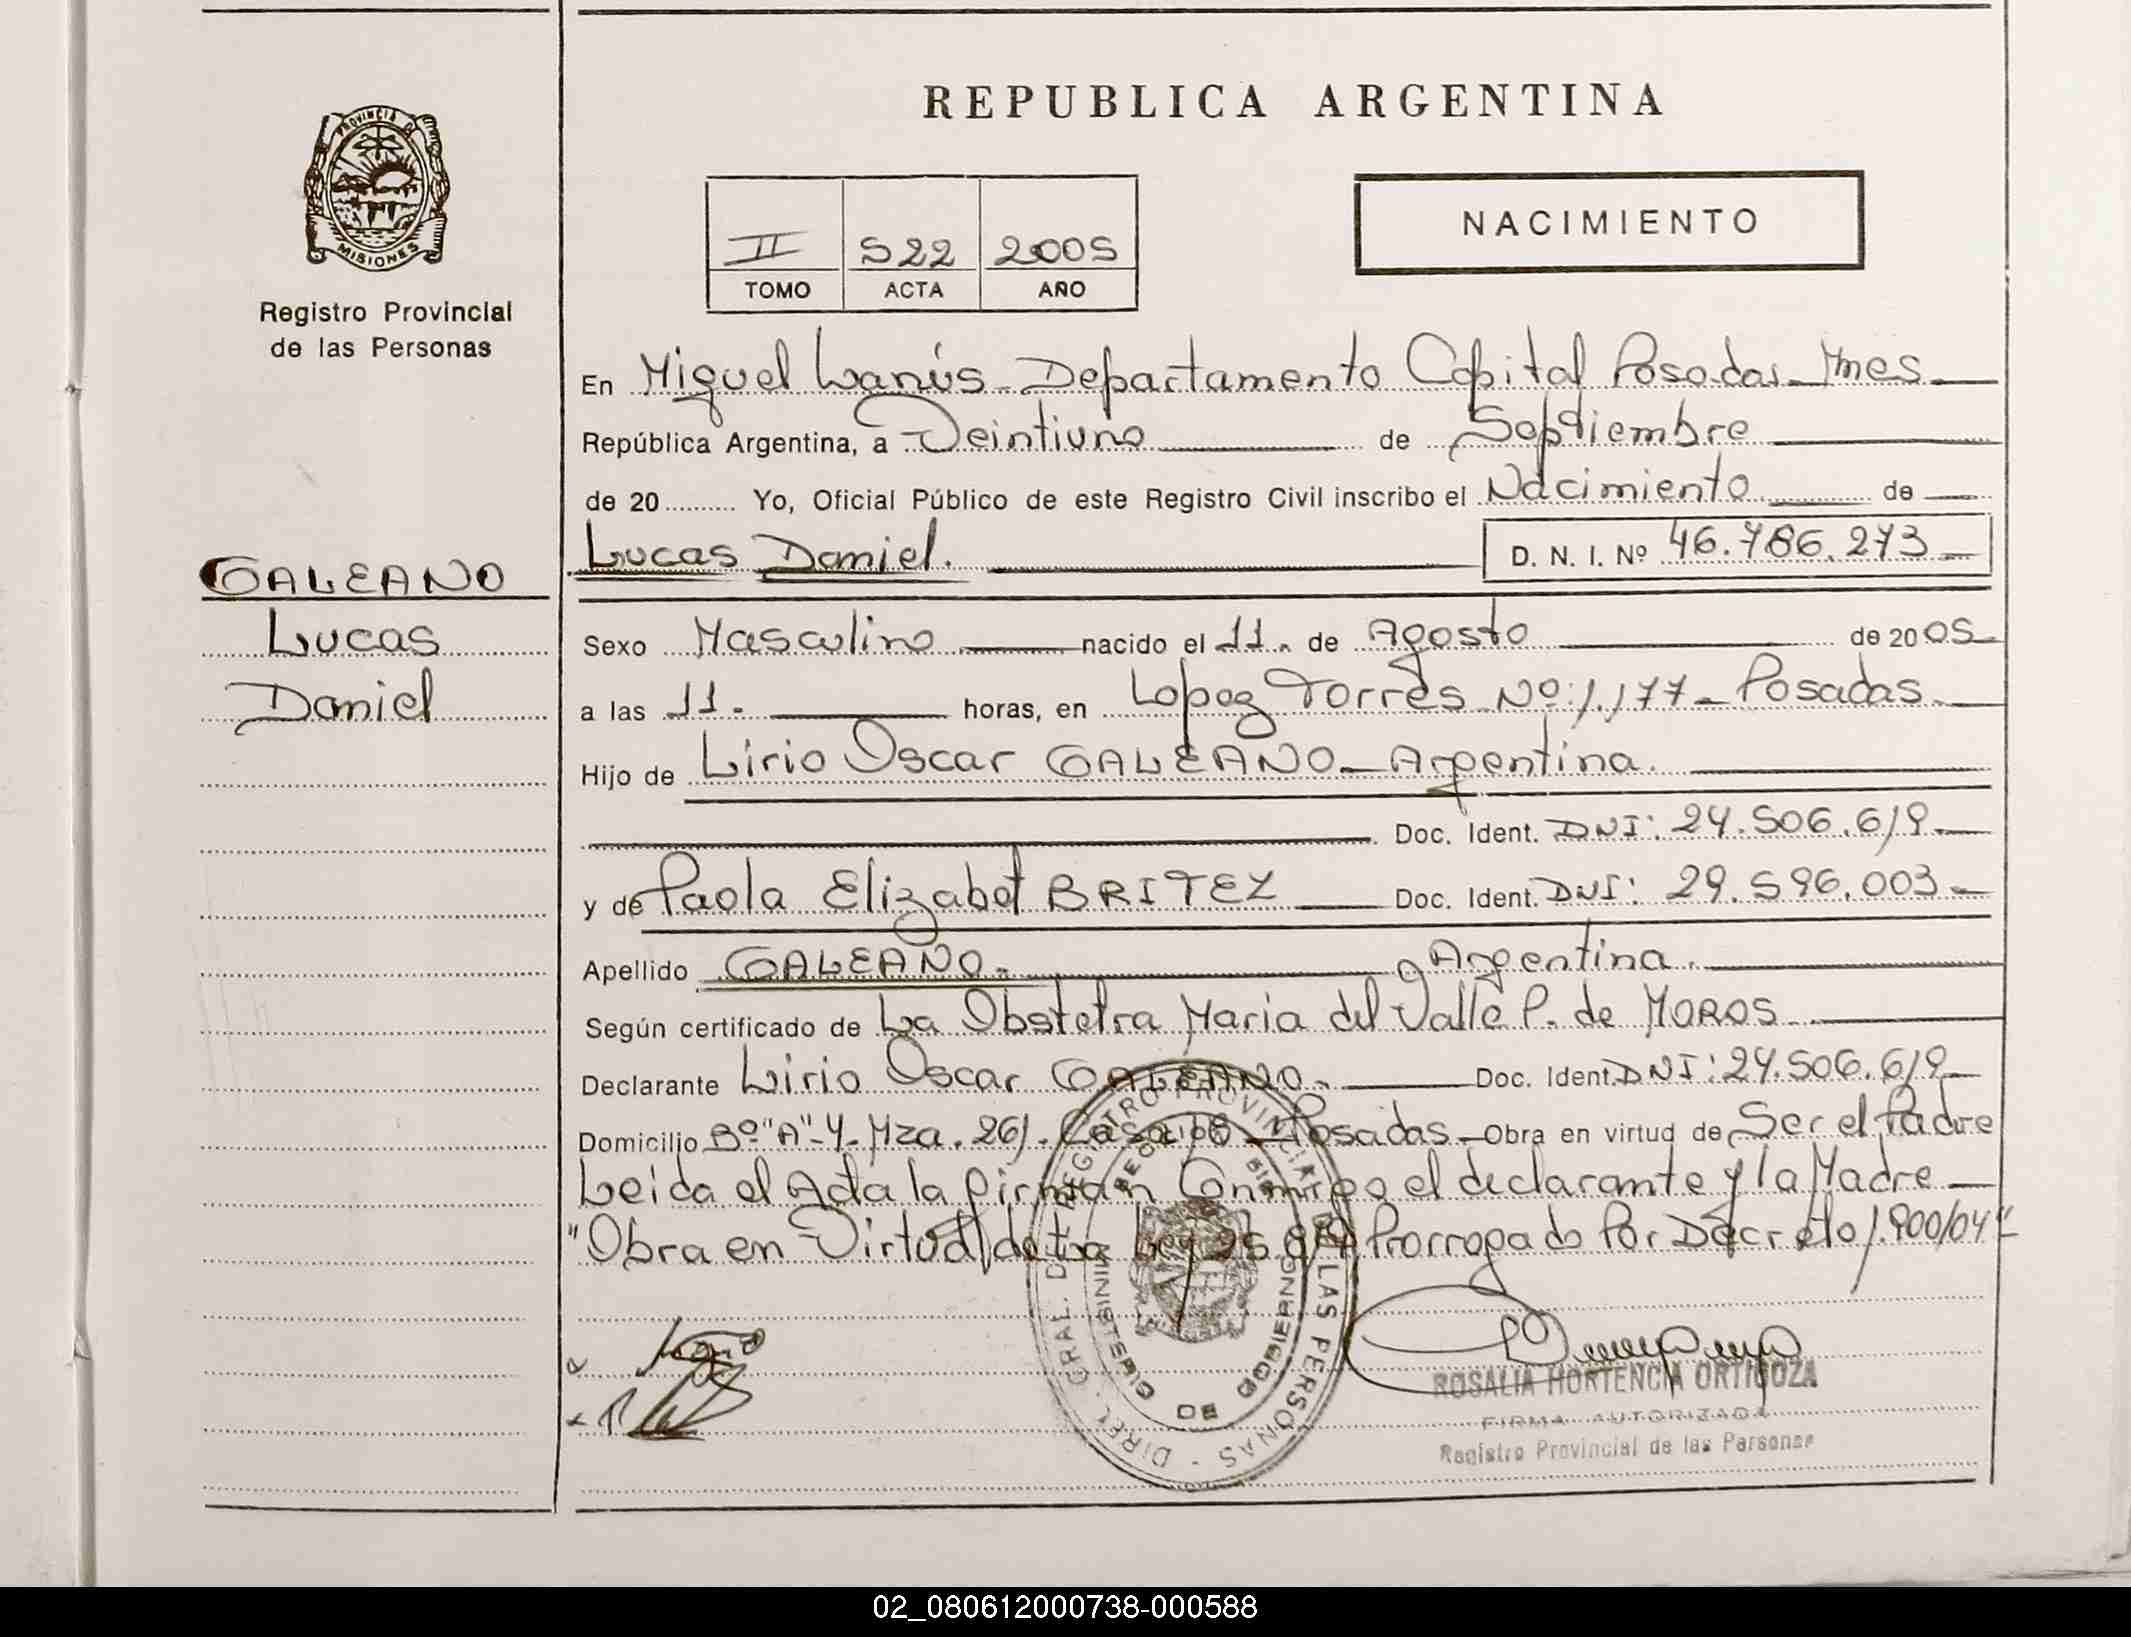 REPUBLICA ARGENTINA
PROVINCIA D
MISIONES
Registro Provincial
de las Personas
II 522 2005
TOMO ACTA AÑO
NACIMIENTO
En Miguel Lanús - Departamento Capital Posadas - Mnes
República Argentina, a Veintiuno de Septiembre
de 20.......... Yo, Oficial Público de este Registro Civil inscribo el Nacimiento de
Lucas Daniel. D. N. I. Nº 46.786.273
GALEANO
Lucas
Daniel
Sexo Masculino nacido el 11. de Agosto de 2005
a las 11. horas, en Lopez Torres Nº: 1.177 - Posadas
Hijo de Lirio Oscar GALEANO - Argentina.
Doc. Ident. DNI: 24.506.619
y de Paola Elizabet BRITEZ Doc. Ident. DNI: 29.596.003
Apellido GALEANO. Argentina.
Según certificado de La Obstetra Maria del Valle P. de MOROS
Declarante Lirio Oscar GALEANO. Doc. Ident. DNI: 24.506.619
Domicilio Bº "A"-4. Mza. 261. Casa Posadas Obra en virtud de Ser el Padre
Leida el Acta la firman Conmigo el declarante y la Madre
"Obra en Virtud de la Ley 25.819 Prorrogado Por Decreto 1.900/04"
DIREC. GRAL. DE REGISTRO PROVINCIAL DE LAS PERSONAS
MINISTERIO DE GOBIERNO
ROSALIA HORTENCIA ORTIGOZA
FIRMA AUTORIZADA
Registro Provincial de las Personas
02_080612000738-000588